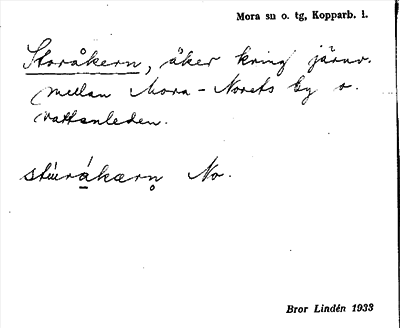 Mora sn o. tg, Kopparb. l.
Storåkern, åker kring järnv.
mellan Mora - Norets by o.
vattenleden.
stúrákærn̥ No.
Bror Lindén 1933